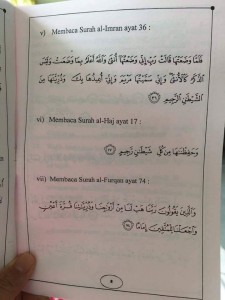 v) Membaca Surah al-Imran ayat 36 :
فَلَمَّا وَضَعَتْهَا قَالَتْ رَبِّ إِنِّي وَضَعْتُهَا أُنثَىٰ وَاللَّهُ أَعْلَمُ بِمَا وَضَعَتْ وَلَيْسَ
الذَّكَرُ كَالْأُنثَىٰ وَإِنِّي سَمَّيْتُهَا مَرْيَمَ وَإِنِّي أُعِيذُهَا بِكَ وَذُرِّيَّتَهَا مِنَ
الشَّيْطَٰنِ الرَّجِيمِ ﴿٣٦﴾
vi) Membaca Surah al-Haj ayat 17 :
وَحَفِظْنَٰهَا مِن كُلِّ شَيْطَٰنٍ رَّجِيمٍ ﴿١٧﴾
vii) Membaca Surah al-Furqan ayat 74 :
وَالَّذِينَ يَقُولُونَ رَبَّنَا هَبْ لَنَا مِنْ أَزْوَٰجِنَا وَذُرِّيَّٰتِنَا قُرَّةَ أَعْيُنٍ
وَاجْعَلْنَا لِلْمُتَّقِينَ إِمَامًا ﴿٧٤﴾
8